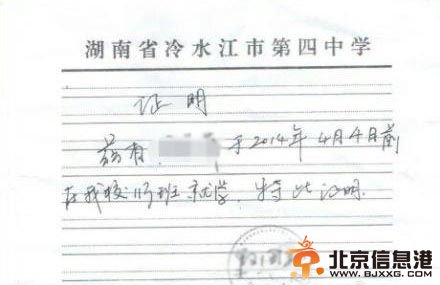 湖南省冷水江市第四中学
证明
兹有 于2014年4月4日前
在我校113班就学,特此证明.
北京信息港
WWW.BJXXG.COM